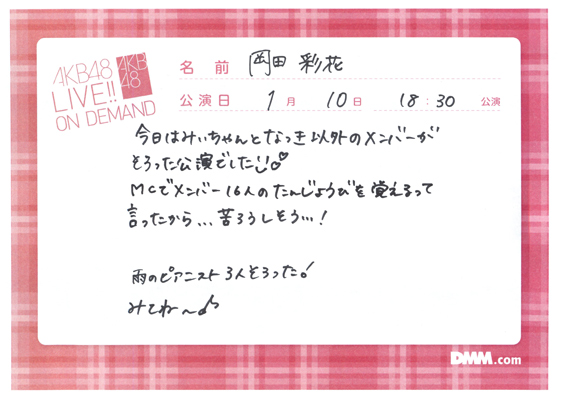 AKB48
LIVE!!
ON DEMAND
AKB
48
名 前 岡田 彩花
公演日 1月 10日 18:30 公演
今日はみぃちゃんとなっき以外のメンバーが
そろった公演でした
MCでメンバー16人のたんじょうびを覚えるって
言ったから...苦ろうしそう...!
雨のピアニスト3人そろった!
みてね〜♪
DMM.com